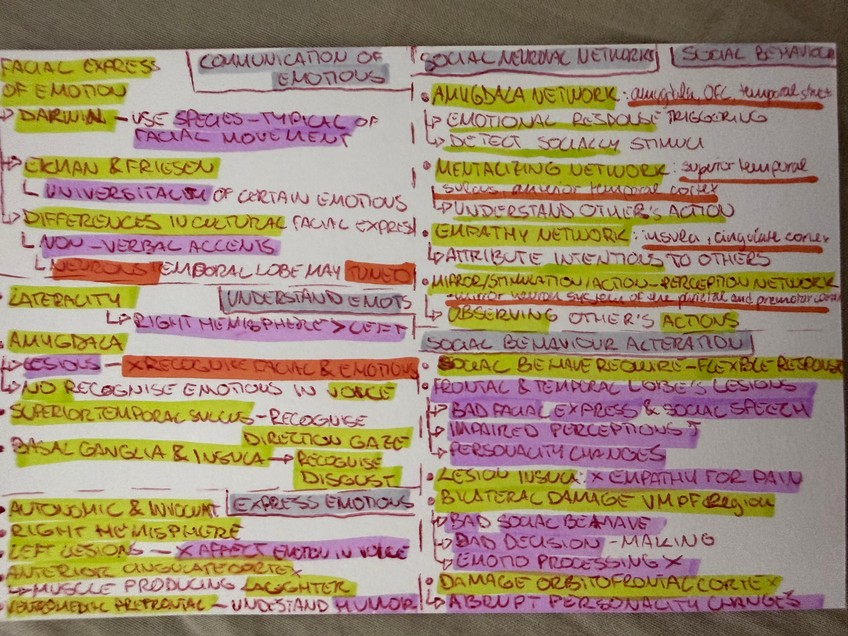 FACIAL EXPRESS
OF EMOTION
COMMUNICATION OF
EMOTIONS
DARWIN - USE SPECIES-TYPICAL OF
FACIAL MOVEMENT
EKMAN & FRIESEN
OF CERTAIN EMOTIONS
DIFFERENCES IN CULTURAL FACIAL EXPRES
NON-VERBAL ACCENTS
NEURONS TEMPORAL LOBE MAY TUNED
LATERALITY
UNDERSTAND EMOTS
RIGHT HEMISPHERE > LEFT
AMYGDALA
LESIONS - X RECOGNISE FACIAL & EMOTIONS
NO RECOGNISE EMOTIONS IN VOICE
SUPERIOR TEMPORAL SULCUS - RECOGNISE
DIRECTION GAZE
BASAL GANGLIA & INSULA → RECOGNISE
DISGUST
EXPRESS EMOTIONS
AUTONOMIC & INVOLUNT
RIGHT HEMISPHERE
LEFT LESIONS - X AFFECT EMOTION IN VOICE
ANTERIOR CINGULATE CORTEX
MUSCLE PRODUCING LAUGHTER
VENTROMEDIC PREFRONTAL - UNDESTAND HUMOR
SOCIAL NEURONAL NETWORKS
SOCIAL BEHAVIOUR
AMYGDALA NETWORK: amygdala, OFC, temporal
EMOTIONAL RESPONSE TRIGGERING
DETECT SOCIALLY STIMULI
MENTALIZING NETWORK: superior temporal
sulcus anterior temporal cortex
UNDERSTAND OTHER'S ACTION
EMPATHY NETWORK: insula, cingulate cortex
ATTRIBUTE INTENTIONS TO OTHERS
MIRROR/STIMULATION/ACTION-PERCEPTION NETWORK
mirror neuron system of the parietal and premotor
OBSERVING OTHER'S ACTIONS
SOCIAL BEHAVIOUR ALTERATION
SOCIAL BEHAVE REQUIRE - FLEXIBLE RESPONSE
FRONTAL & TEMPORAL LOBE'S LESIONS
BAD FACIAL EXPRESS & SOCIAL SPEECH
IMPAIRED PERCEPTIONS
PERSONALITY CHANGES
LESION INSULA: X EMPATHY FOR PAIN
BILATERAL DAMAGE VMPF Region
BAD SOCIAL BEHAVE
BAD DECISION-MAKING
EMOTIO PROCESSING X
DAMAGE ORBITOFRONTAL CORTEX
ABRUPT PERSONALITY CHANGES